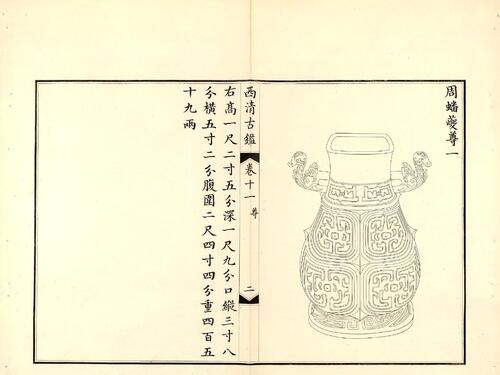 周蟠夔尊一
西清古鑑 卷十一 尊 二
右高一尺二寸五分深一尺九分口縱三寸八
分橫五寸二分腹圍二尺四寸四分重四百五
十九兩